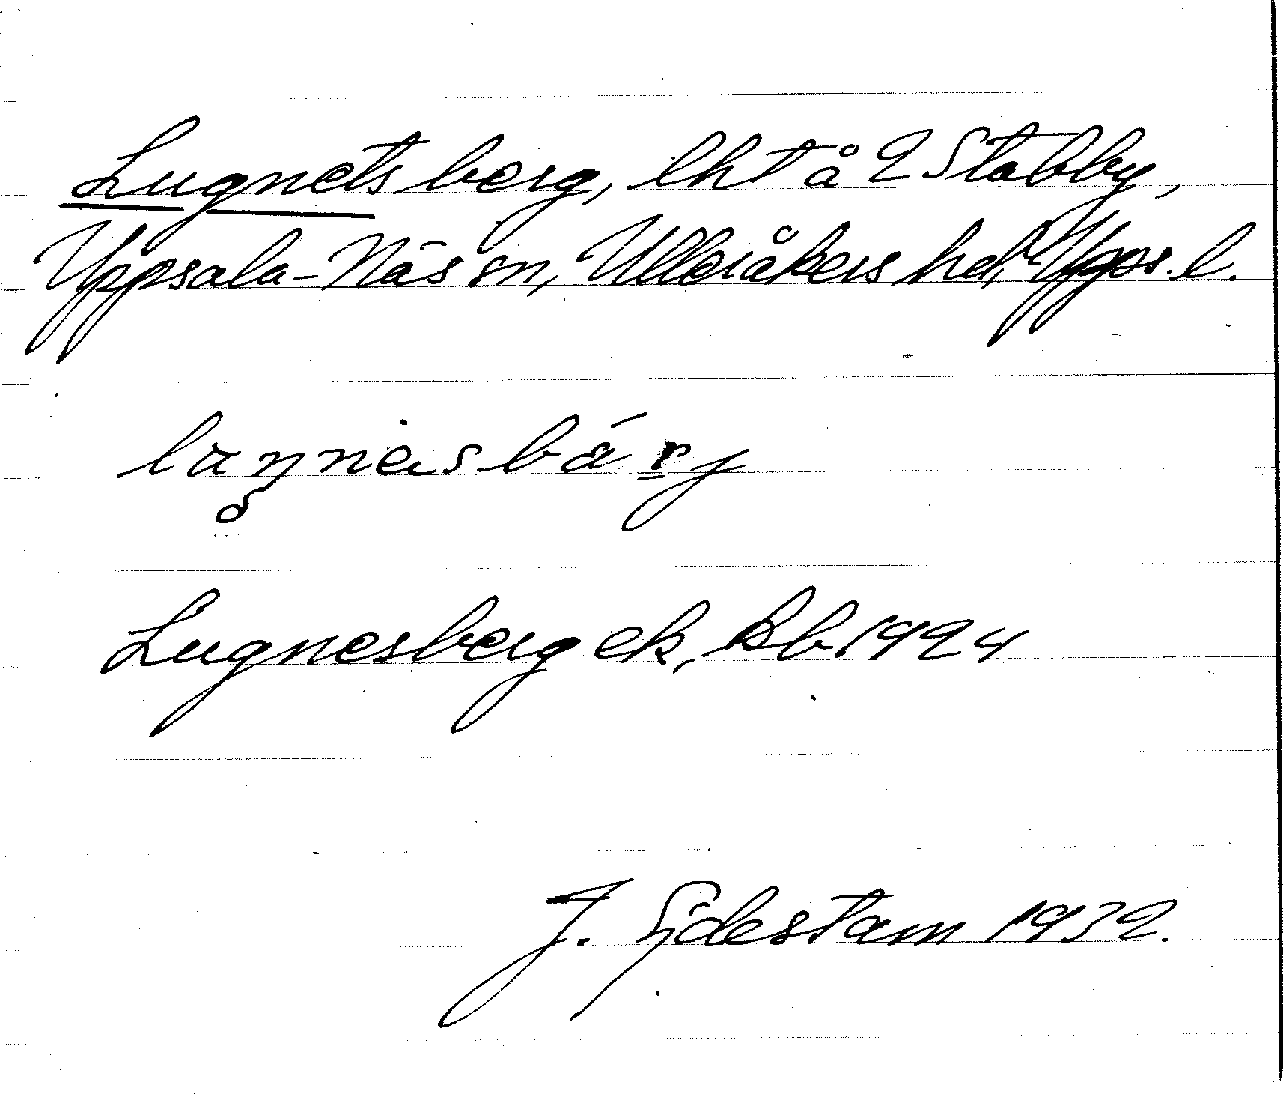 Lugnetsberg, lht å 2 Stabby,
Uppsala-Näs sn, Ulleråkers hd, Upps. l.
Lugnesberg ek, Rb 1924
J. Sjdestam 1932.